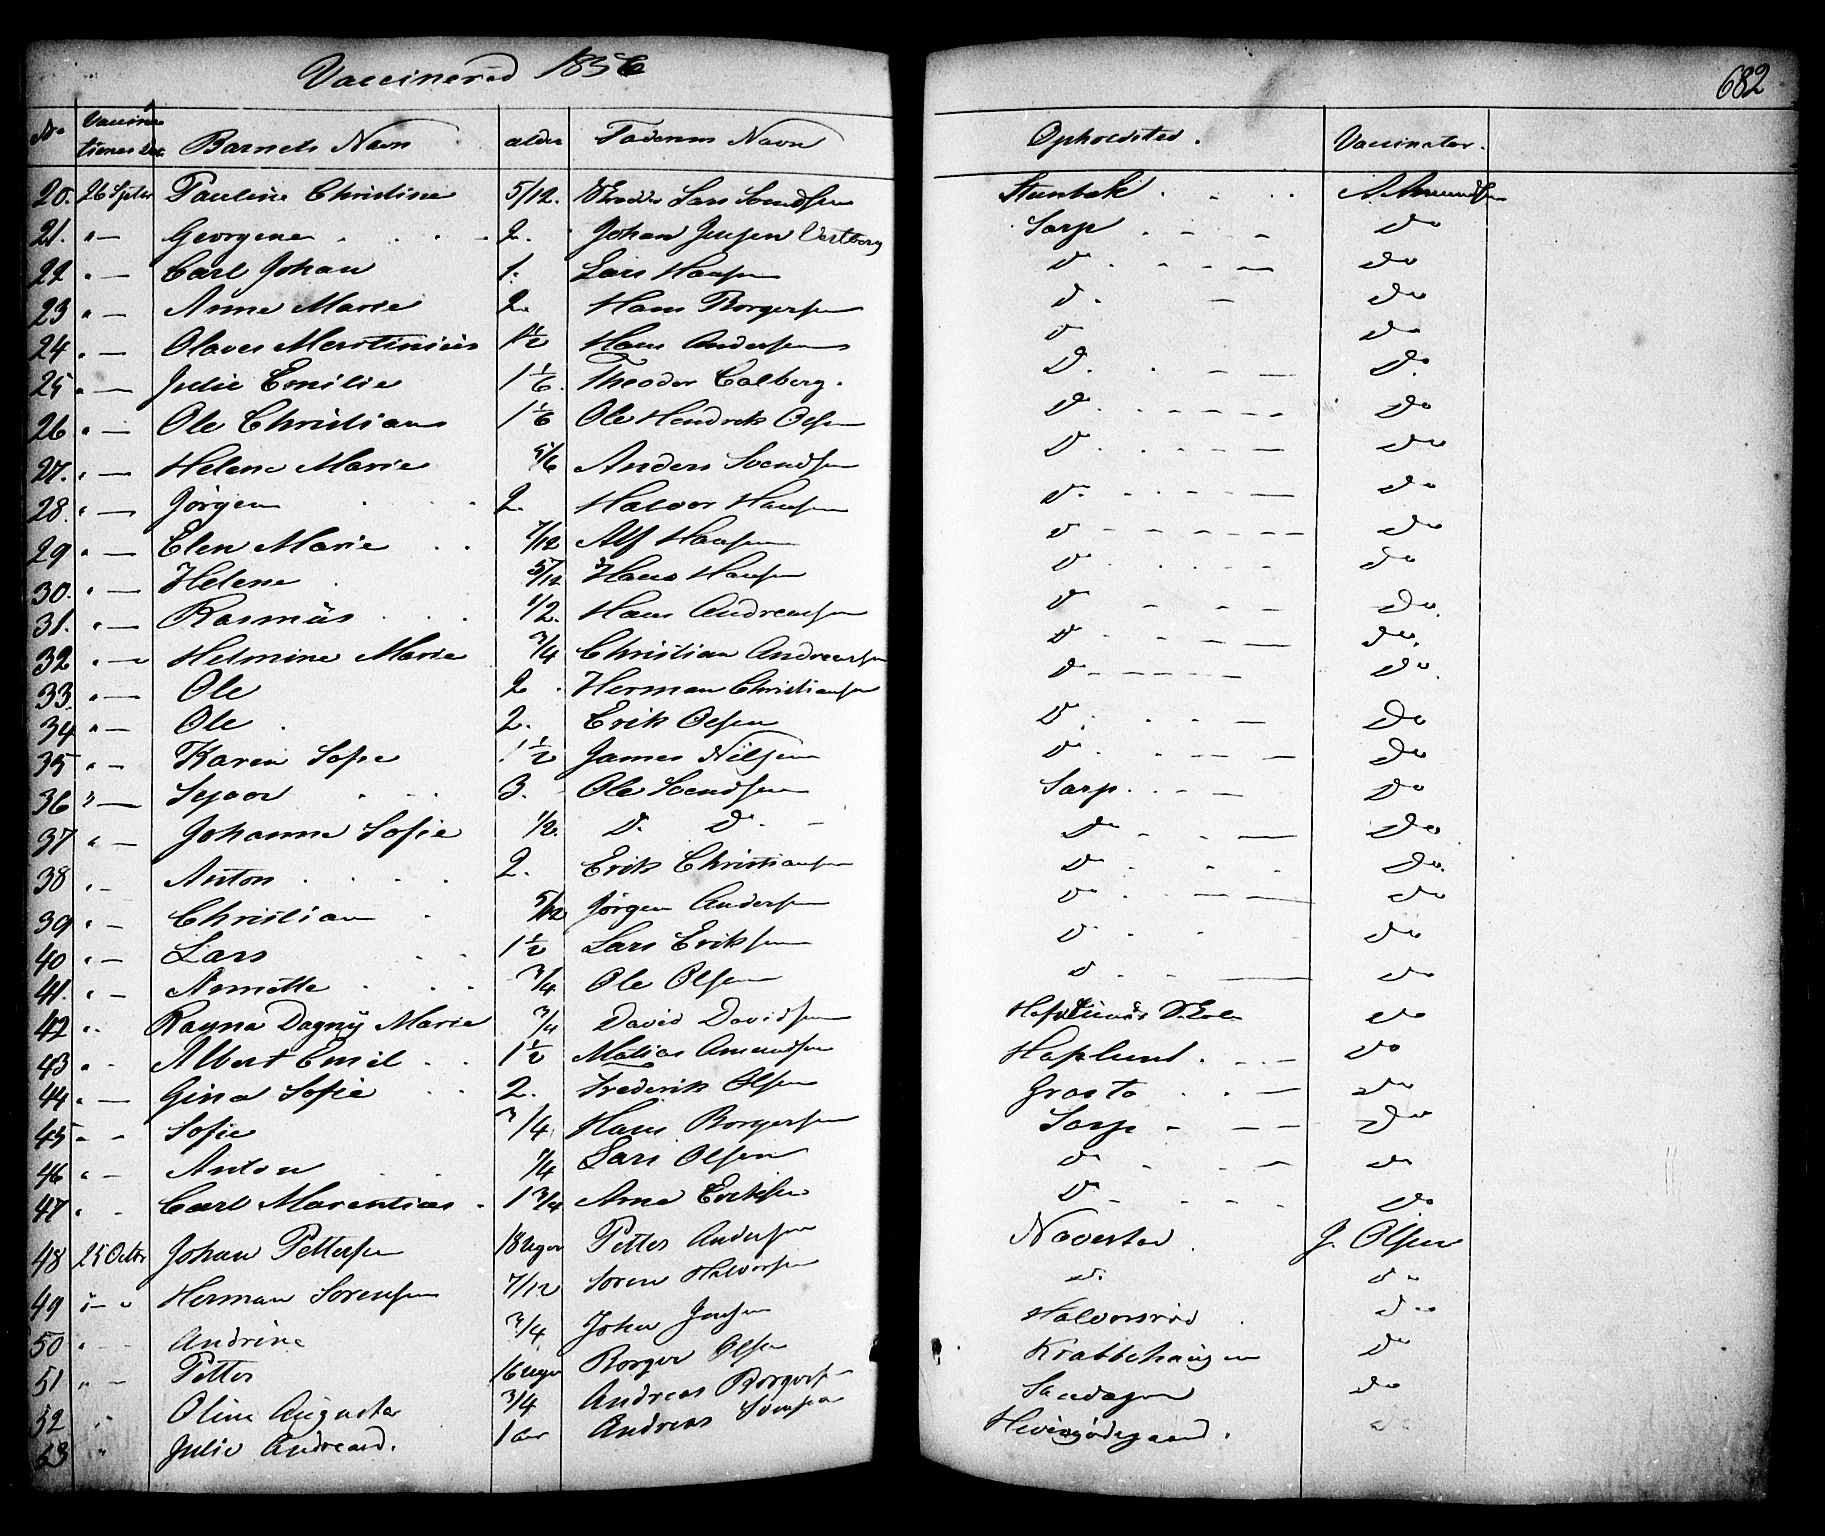 Vaccinered 1856
682
No Vaccinationsdat. Barnets Navn alder Faderens Navn Opholdsted. Vaccinator.
20. 26 Septbr Pauline Christine 5/12. Lars Svendsen Stenbek A. Amundsen
21. " — Georgene 2. Johan Jensen Vestberg Sarp Do
22 " — Carl Johan 1. Lars Hansen Do Do
23 " — Anne Marie 2. Hans Borgersen D. Do
24 " — Olaves Martinius 1½ Hans Andersen D Do
25 " — Julie Emilie 1 1/6. Theodor Calberg. D. Do.
26 " — Ole Christian 1 1/6 Ole Hendrik Olsen Do Do
27. " — Helene Marie 5/6 Anders Svendsen Do Do
28. " — Jörgen 2. Halvor Hansen Do Do
29 " — Elen Marie 7/12 Alf Hansen Do Do
30. " — Helene 5/12 Hans Hansen Do Do
31. " — Rasmus 1/2. Hans Andreassen Do Do.
32 " — Helmine Marie 3/4 Christian Andreassen Do Do.
33. " — Ole 2 Herman Christiansen Do Do.
34 " — Ole 2. Erik Olsen Do Do
35 " — Karen Sofie 1½ James Nilsen Do Do
36 " — Syvor 3. Ole Svendsen Sarp. Do
37 " — Johanne Sofie 1/2. D. D. Do Do
38 " — Anton 2. Erik Christiansen Do Do.
39 " — Christian 5/12 Jörgen Andersen Do Do
40 " — Lars 1½ Lars Eriksen Do Do
41. " — Annette 3/4 Ole Olsen Do Do
42 " Ragna Dagny Marie 3/4 David Davidsen Do
43 " Albert Emil 1½ Matias Amundsen Haflund Do
44 " — Gina Sofie 2. Frederik Olsen Do
45 " Sofie 3/4 Hans Borgersen Sarp Do
46 " Anton 3/4 Lars Olsen Do Do
47 " Carl Marentius 1 3/4 Arne Eriksen Do Do
48 25 Octbr Johan Pettersen 18 uger Petter Andersen Navestad J. Olsen
49 " Herman Sorensen 7/12 Soren Halvorsen do. Do
50 " Andrine 3/4 Johan Jensen Halvorsröd Do
51 " Petter 16 uger Borger Olsen Do
52 " Oline Augusta 3/4 Andreas Borgersen Do
53 " Julie Andreasd. 1 aar Andreas Do